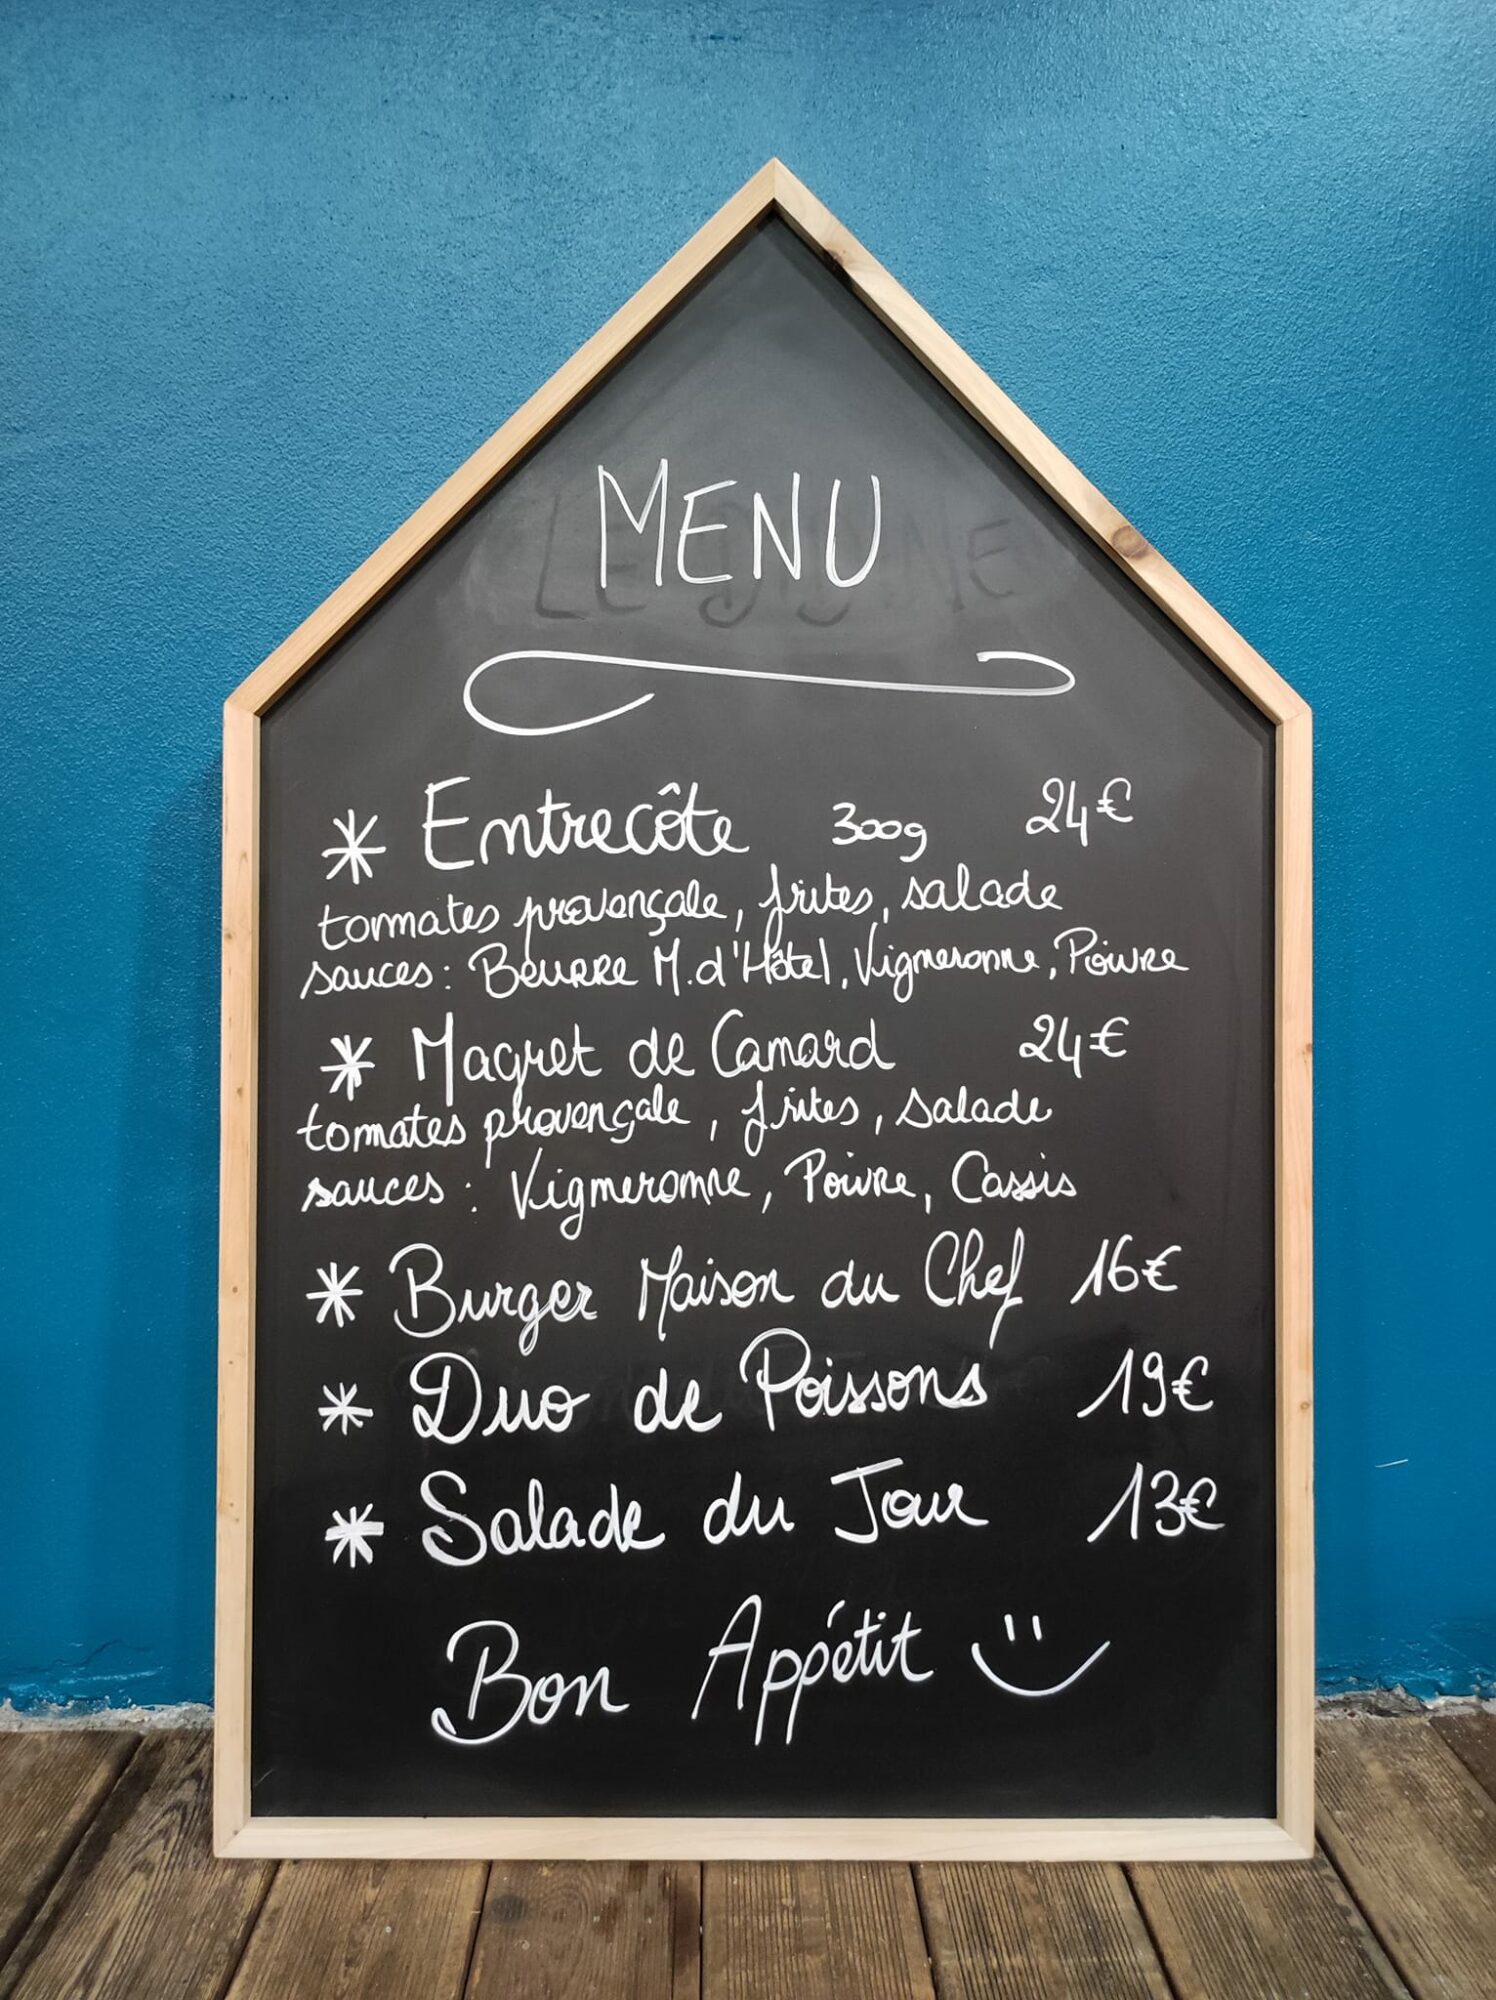 MENU
* Entrecôte 300g 24€
tomates provençale, frites, salade
sauces : Beurre M.d'Hôtel, Vigneronne, Poivre
* Magret de Canard 24€
tomates provençale, frites, salade
sauces : Vigneronne, Poivre, Cassis
* Burger Maison du Chef 16€
* Duo de Poissons 19€
* Salade du Jour 13€
Bon Appétit